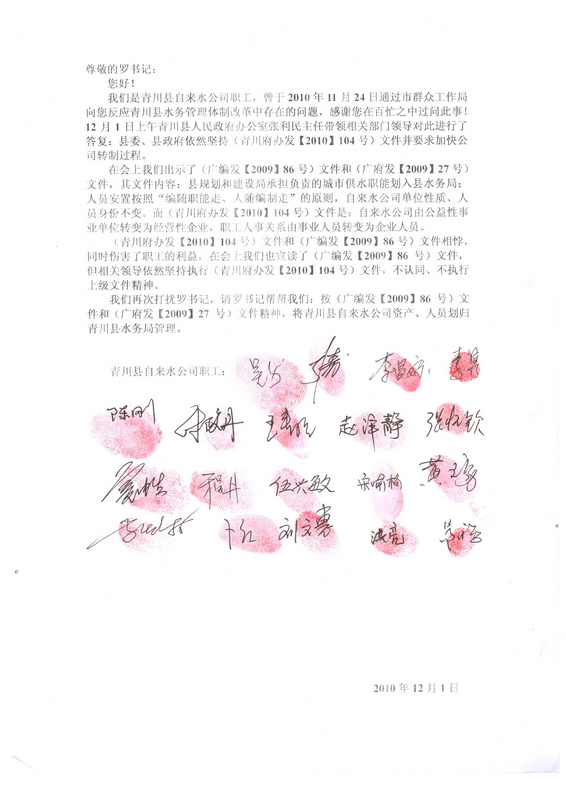 尊敬的罗书记：
您好！
我们是青川县自来水公司职工，曾于2010年11月24日通过市群众工作局
向您反应青川县水务管理体制改革中存在的问题，感谢您在百忙之中过问此事！
12月1日上午青川县人民政府办公室张利民主任带领相关部门领导对此进行了
答复：县委、县政府依然坚持（青川府办发【2010】104号）文件并要求加快公
司转制过程。
在会上我们出示了（广编发【2009】86号）文件和（广府发【2009】27号）
文件，其文件内容：县规划和建设局承担负责的城市供水职能划入县水务局；
人员安置按照“编随职能走、人随编制走”的原则，自来水公司单位性质、人
员身份不变。而（青川府办发【2010】104号）文件是：自来水公司由公益性事
业单位转变为经营性企业，职工人事关系由事业人员转变为企业人员。
（青川府办发【2010】104号）文件和（广编发【2009】86号）文件相悖，
同时伤害了职工的利益，在会上我们也宣读了（广编发【2009】86号）文件，
但相关领导依然坚持执行（青川府办发【2010】104号）文件，不认同、不执行
上级文件精神。
我们再次打扰罗书记，请罗书记帮帮我们：按（广编发【2009】86号）文
件和（广府发【2009】27号）文件精神，将青川县自来水公司资产、人员划归
青川县水务局管理。
青川县自来水公司职工：
陈刚 赵泽静
程丹 伍兴敏
卜红 刘文勇 洪亮
2010年12月1日